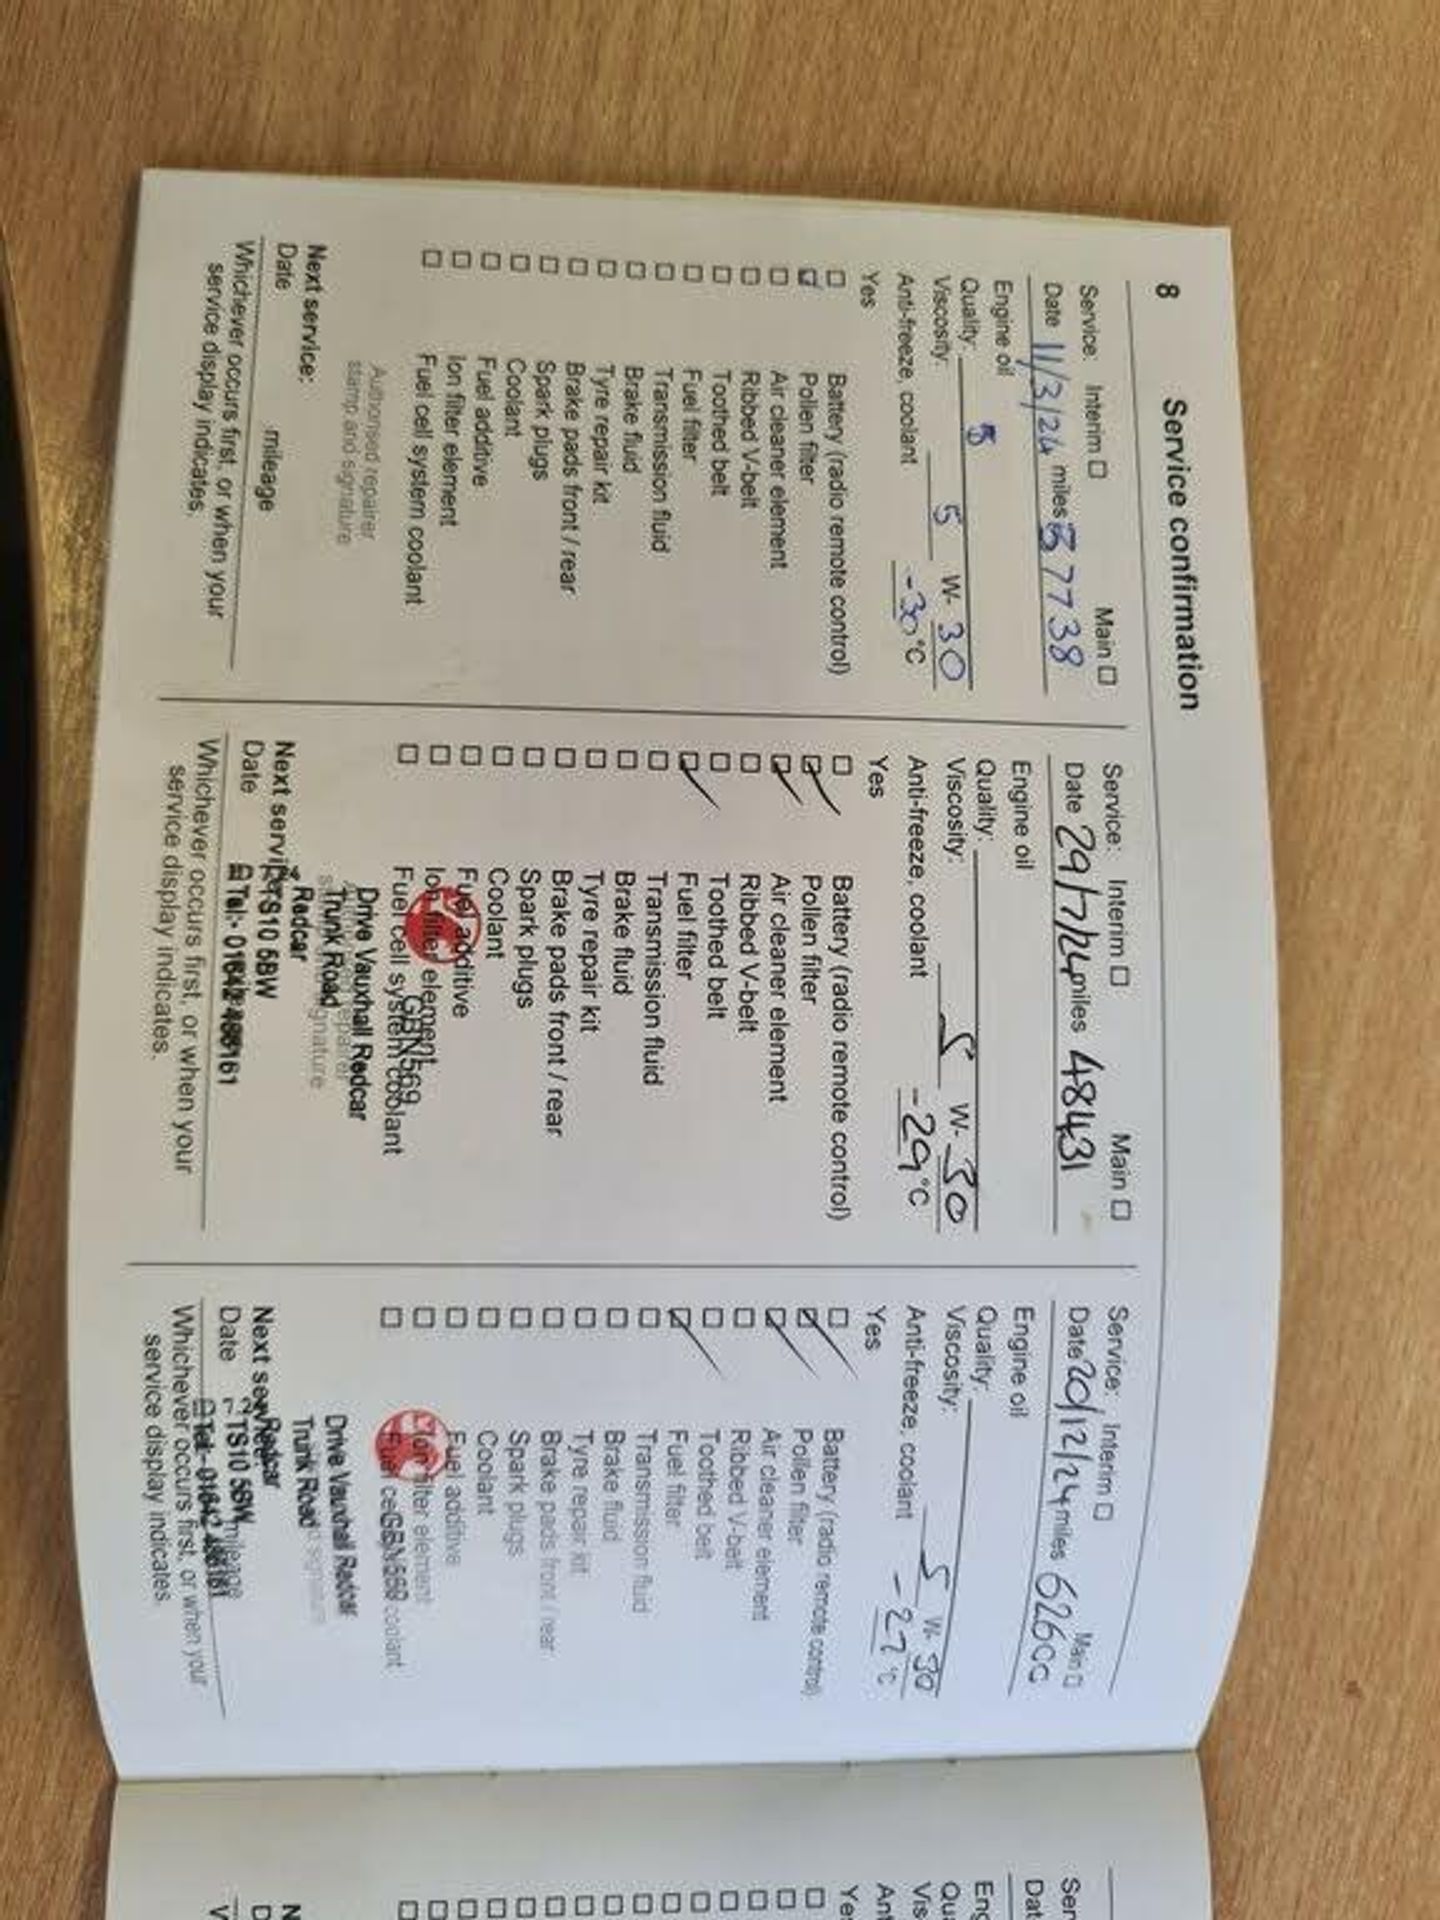 8 Service confirmation
Service: Interim ☐ Main ☐
Date 11/3/24 miles 37738
Engine oil
Quality: 5
Viscosity: 5 W- 30
Anti-freeze, coolant -30°C
Yes
☐ Battery (radio remote control)
☑ Pollen filter
☐ Air cleaner element
☐ Ribbed V-belt
☐ Toothed belt
☐ Fuel filter
☐ Transmission fluid
☐ Brake fluid
☐ Tyre repair kit
☐ Brake pads front / rear
☐ Spark plugs
☐ Coolant
☐ Fuel additive
☐ Ion filter element
☐ Fuel cell system coolant
Authorised repairer
stamp and signature
Next service:
Date mileage
Whichever occurs first, or when your
service display indicates.
Service: Interim ☐ Main ☐
Date 29/7/24 miles 48431
Engine oil
Quality:
Viscosity: 5 W- 30
Anti-freeze, coolant -29°C
Yes
☐ Battery (radio remote control)
☑ Pollen filter
☑ Air cleaner element
☐ Ribbed V-belt
☐ Toothed belt
☑ Fuel filter
☐ Transmission fluid
☐ Brake fluid
☐ Tyre repair kit
☐ Brake pads front / rear
☐ Spark plugs
☐ Coolant
☐ Fuel additive
☐ Ion filter element
☐ Fuel cell system coolant
GBN569
Drive Vauxhall Redcar
Trunk Road
Redcar
TS10 5BW
Tel:- 01642 486161
Next service
Date
Whichever occurs first, or when your
service display indicates.
Service: Interim ☐ Main ☐
Date 20/12/24 miles 62600
Engine oil
Quality:
Viscosity: 5 W- 30
Anti-freeze, coolant -27°C
Yes
☐ Battery (radio remote control)
☑ Pollen filter
☑ Air cleaner element
☐ Ribbed V-belt
☐ Toothed belt
☑ Fuel filter
☐ Transmission fluid
☐ Brake fluid
☐ Tyre repair kit
☐ Brake pads front / rear
☐ Spark plugs
☐ Coolant
☐ Fuel additive
☐ Ion filter element
☐ Fuel coolant
GBN569
Drive Vauxhall Redcar
Trunk Road
Redcar
TS10 5BW
Tel:- 01642 486161
Next
Date mileage
Whichever occurs first, or when your
service display indicates.